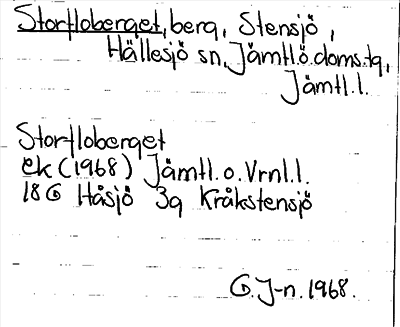 Storfloberget, berg, Stensjö,
Hällesjö sn, Jämtl.ö.doms.tg,
Jämtl.l.
Storfloberget
ek (1968) Jämtl. o. Vrnl.l.
18G Håsjö 3g Kråkstensjö
G.J-n. 1968.